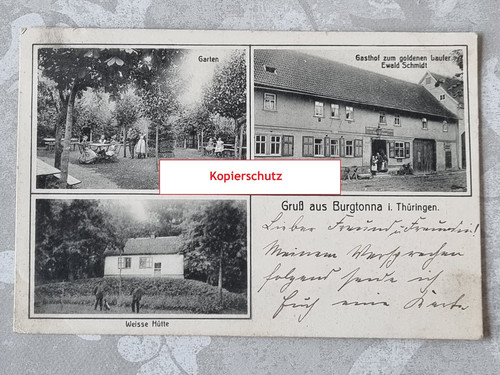 Garten
Gasthof zum goldenen Laufer
Ewald Schmidt
Kopierschutz
Gruß aus Burgtonna i. Thüringen.
Lieber Freund u Freundin!
Meinem Versprechen
folgend sende ich
Euch eine Karte
Weisse Hütte